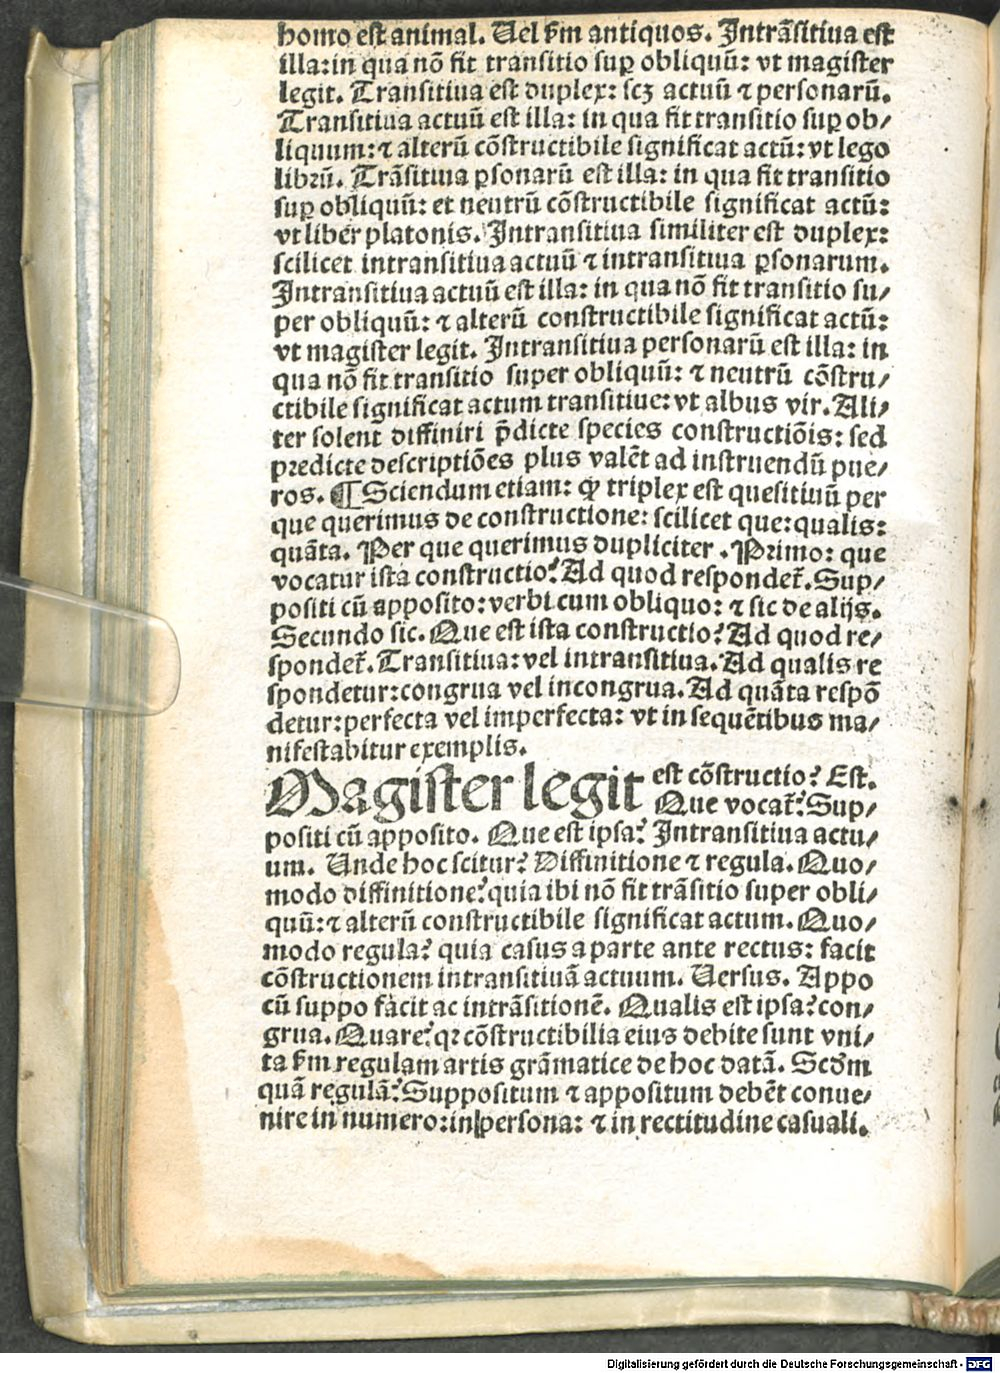 homo est animal. Uel ẜm antiquos. Intrāsitiua est
illa: in qua nō fit transitio suꝑ obliquū: vt magister
legit. Transitiua est duplex: scꝫ actuū ⁊ personarū.
Transitiua actuū est illa: in qua fit transitio suꝑ ob/
liquum: ⁊ alterū cōstructibile significat actū: vt lego
librū. Trāsitiua ꝑsonarū est illa: in qua fit transitio
suꝑ obliquū: et neutrū cōstructibile significat actū:
vt liber platonis. Intransitiua similiter est duplex:
scilicet intransitiua actuū ⁊ intransitiua ꝑsonarum.
Intransitiua actuū est illa: in qua nō fit transitio su/
per obliquū: ⁊ alterū constructibile significat actū:
vt magister legit. Intransitiua personarū est illa: in
qua nō fit transitio super obliquū: ⁊ neutrū cōstru/
ctibile significat actum transitiue: vt albus vir. Ali/
ter solent diffiniri p̄dicte species constructiōis: sed
predicte descriptiōes plus valēt ad instruendū pue/
ros. ¶ Sciendum etiam: ꝙ triplex est quesitiuū per
que querimus de constructione: scilicet que: qualis:
quāta. Per que querimus dupliciter. Primo: que
vocatur ista constructio? Ad quod respondet̄. Sup/
positi cū apposito: verbi cum obliquo: ⁊ sic de alijs.
Secundo sic. Que est ista constructio? Ad quod re/
spondet̄. Transitiua: vel intransitiua. Ad qualis re
spondetur: congrua vel incongrua. Ad quāta respō
detur: perfecta vel imperfecta: vt in sequētibus ma/
nifestabitur exemplis.
Magister legit est cōstructio? Est.
Que vocat̄? Sup/
positi cū apposito. Que est ipsa? Intransitiua actu/
um. Unde hoc scitur? Diffinitione ⁊ regula. Quo/
modo diffinitione? quia ibi nō fit trāsitio super obli/
quū: ⁊ alterū constructibile significat actum. Quo/
modo regula? quia casus a parte ante rectus: facit
cōstructionem intransitiuā actuum. Uersus. Appo
cū suppo facit ac intrāsitionē. Qualis est ipsa? con/
grua. Quare? qꝛ cōstructibilia eius debite sunt vni/
ta ẜm regulam artis grāmatice de hoc datā. Scd̄m
quā regulā? Suppositum ⁊ appositum debēt conue/
nire in numero: in persona: ⁊ in rectitudine casuali.
Digitalisierung gefördert durch die Deutsche Forschungsgemeinschaft - DFG